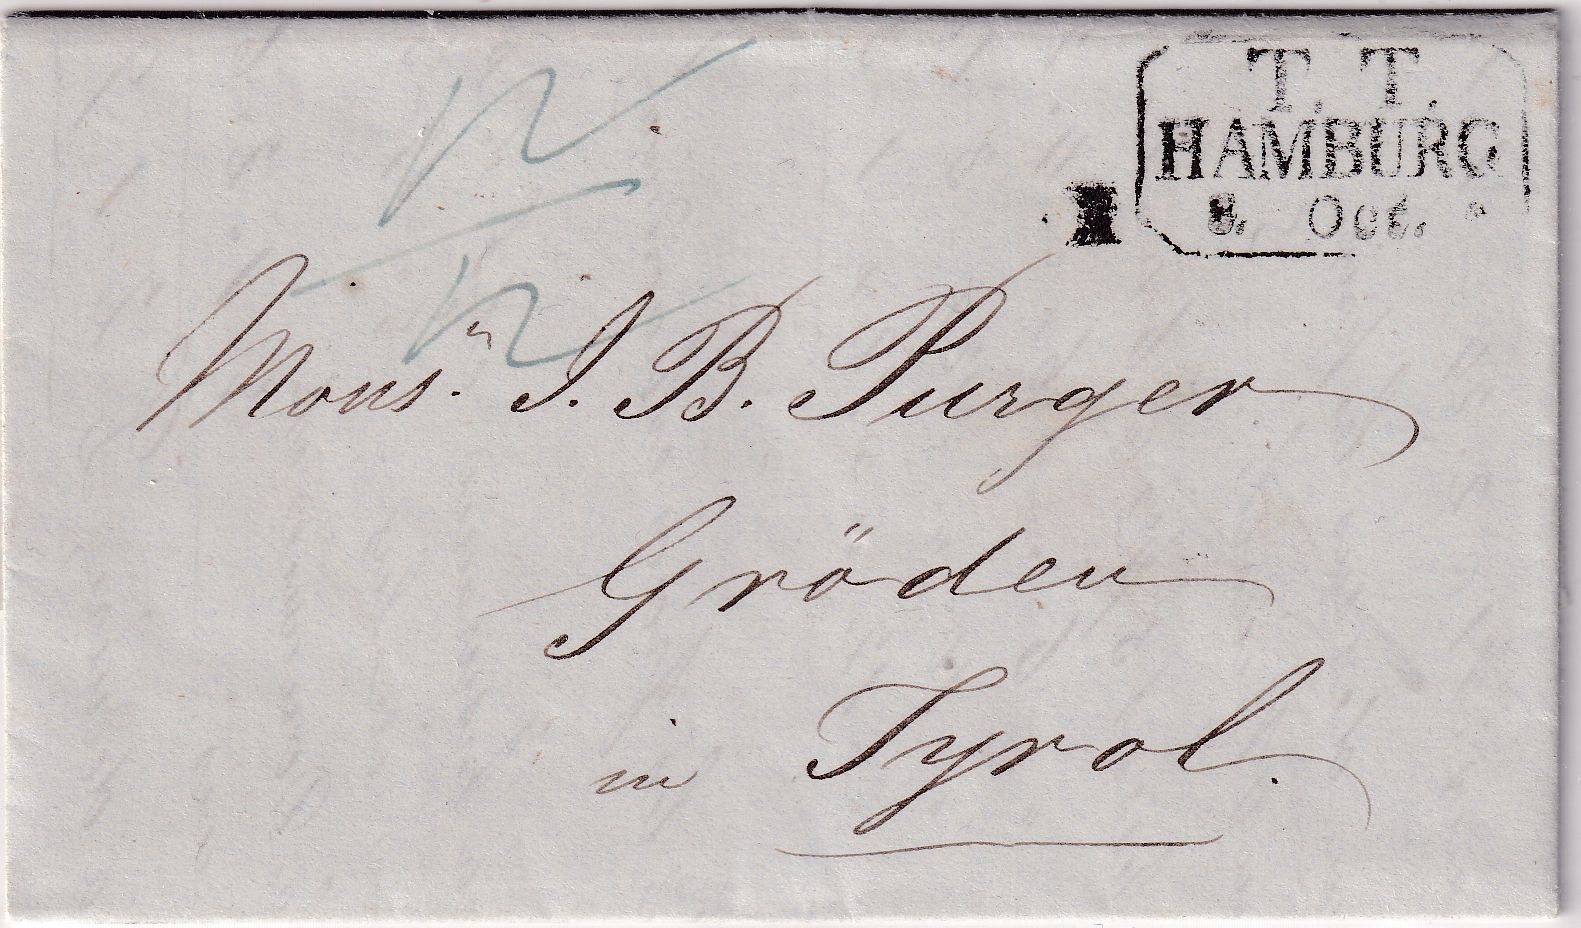 T. T.
HAMBURG
8. Oct.
I
12
12
Mons. J. B. Purger
Gröden
in Tyrol.